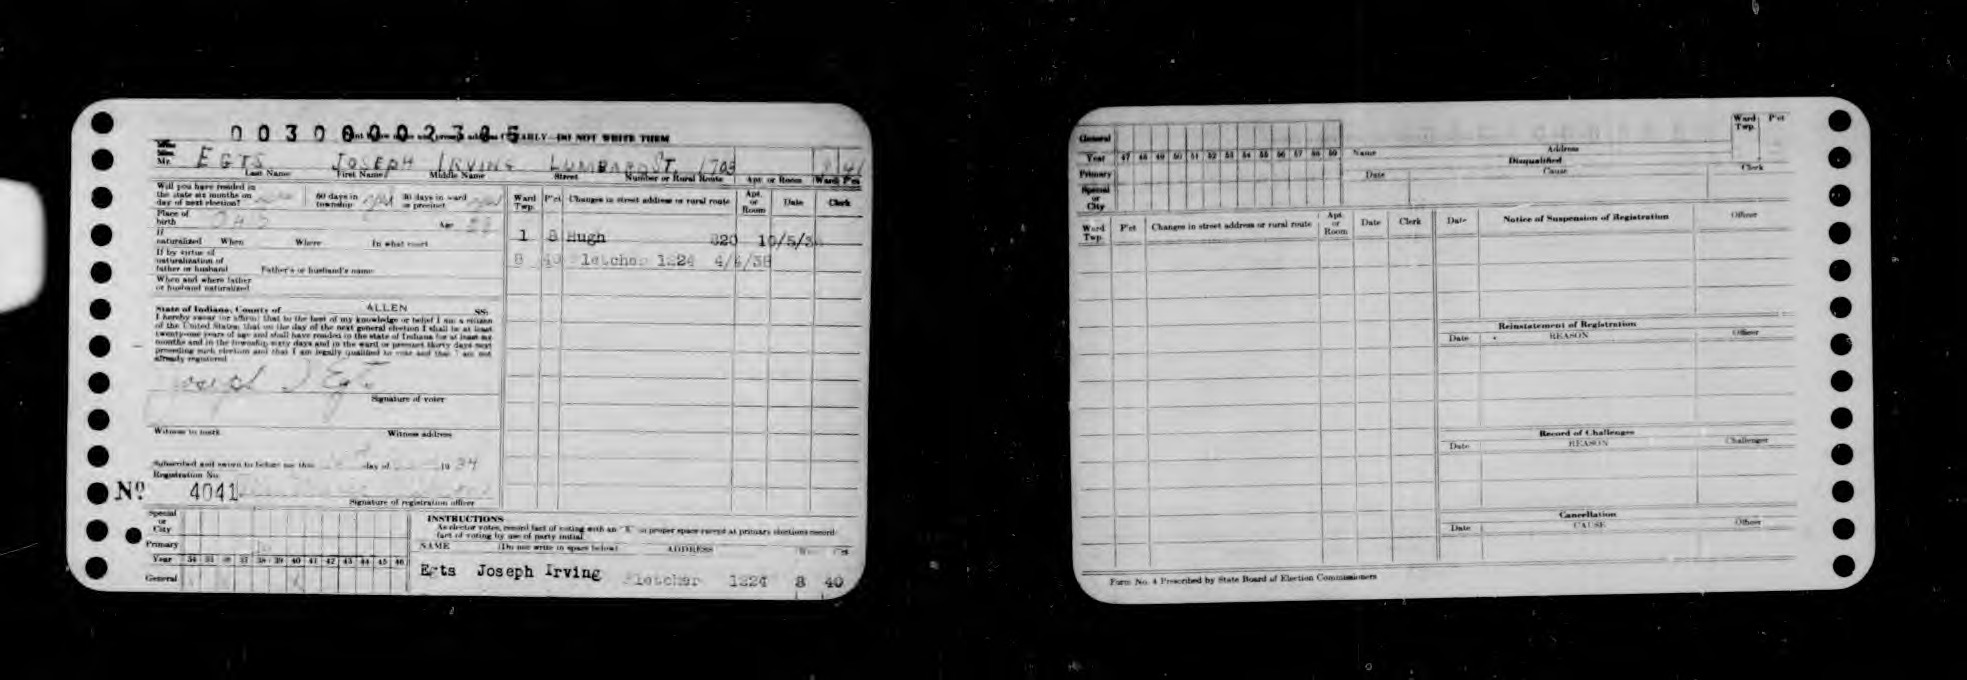 00300002385
EARLY—DO NOT WRITE THEM
Mr. EGTS JOSEPH IRVING LUMBARD ST. 1703 41
Last Name First Name Middle Name Street Number or Rural Route Apt. or Room Ward P'ct
Will you have resided in
the state six months on
day of next election?
60 days in
township
30 days in ward
or precinct
Place of
birth
Age
If
naturalized When Where In what court
If by virtue of
naturalization of
father or husband Father's or husband's name
When and where father
or husband naturalized
Ward
Twp. P'ct Changes in street address or rural route Apt.
or
Room Date Clerk
1 8 Hugh 820 10/5/3
8 40 Fletcher 1224 4/6/38
State of Indiana, County of ALLEN SS:
I hereby swear (or affirm) that to the best of my knowledge or belief I am a citizen
of the United States; that on the day of the next general election I shall be at least
twenty-one years of age and shall have resided in the state of Indiana for at least six
months and in the township sixty days and in the ward or precinct thirty days next
preceding such election and that I am legally qualified to vote and that I am not
already registered
Joseph I Egts
Signature of voter
Witness to mark Witness address
Subscribed and sworn to before me this day of 1934
Registration No.
No 4041
Signature of registration officer
Special
or
City
Primary
Year 34 35 36 37 38 39 40 41 42 43 44 45 46
General
INSTRUCTIONS
As elector votes, record fact of voting with an "X" in proper space except at primary elections record
fact of voting by use of party initial
NAME (Do not write in space below) ADDRESS
Egts Joseph Irving Fletcher 1224 8 40
General
Year 47 48 49 50 51 52 53 54 55 56 57 58 59
Primary
Special
or
City
Name Address
Ward
Twp. P'ct
Disqualified
Date Cause Clerk
Ward
Twp. P'ct Changes in street address or rural route Apt.
or
Room Date Clerk
Date Notice of Suspension of Registration Officer
Reinstatement of Registration
Date REASON Officer
Record of Challenges
Date REASON Challenger
Cancellation
Date CAUSE Officer
Form No. 4 Prescribed by State Board of Election Commissioners